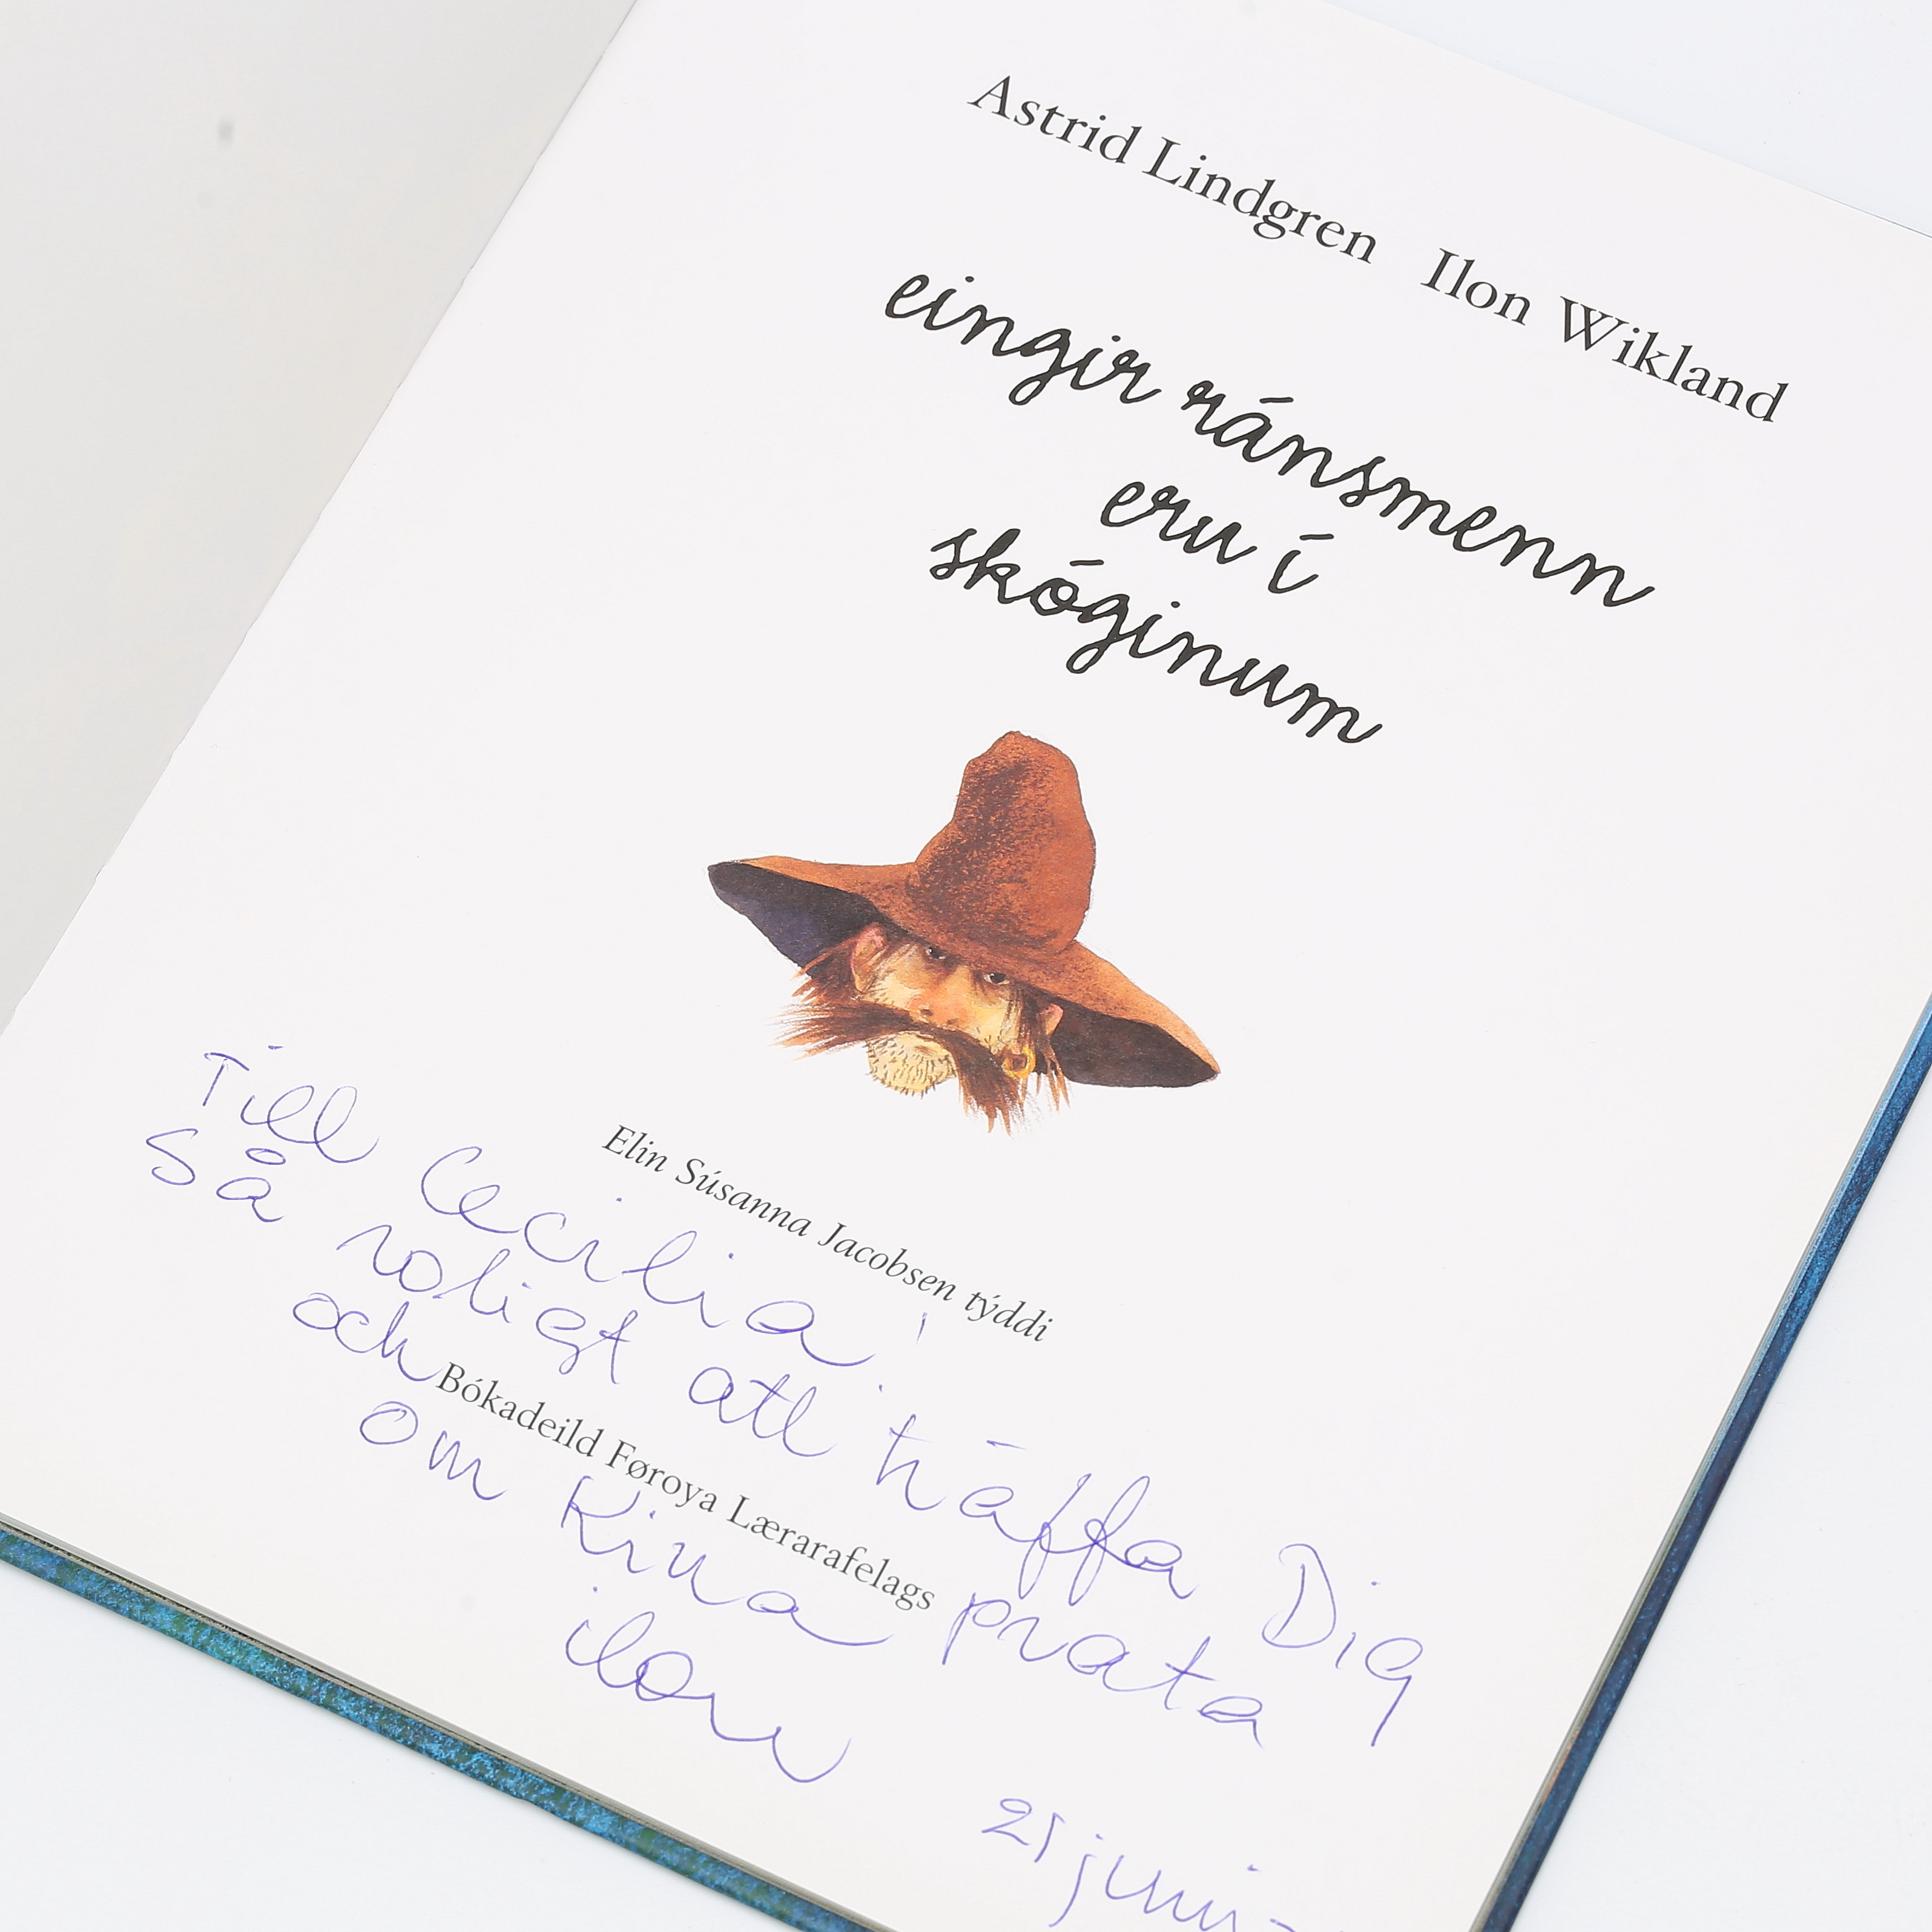 Astrid Lindgren Ilon Wikland
eingir ránsmenn
eru í
skóginum
Elin Súsanna Jacobsen týddi
Bókadeild Føroya Lærarafelags
Till Cecilia!
Så roligt att träffa Dig
och prata
om Kina
ilon
21 juni-